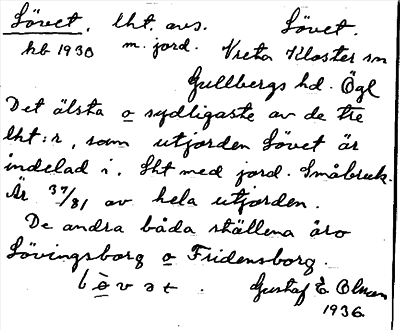 Lövet. lht. avs. Lövet.
hb 1930 m. jord. Vreta Kloster sn
Gullbergs hd. Ögl
Det älsta o sydligaste av de tre
lht:r, som utjorden Lövet är
indelad i. Lht med jord. Småbruk.
Är 37/81 av hela utjorden.
De andra båda ställena äro
Lövingsborg o Fridensborg.
Gustaf E. Olman
1936.